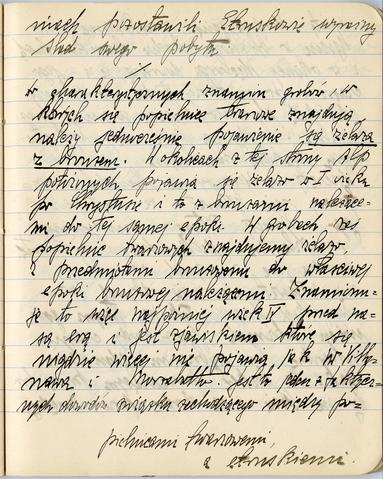 niach pozostawili Etruskowie wyraźny
ślad swego pobytu
w charakterystycznych znanym grobów, w
których się popielnice twarzowe znajdują
należy jednocześnie pojawienie się żelaza
z bronzem. W okolicach z tej strony Alp
położonych pojawia się żelazo w I wieku
po Chrystusie i to z bronzami należące-
mi do tej samej epoki. W grobach zaś
popielnic twarzowych znajdujemy żelazo
z przedmiotami bronzowemi do właściwej
epoki bronzowej należącemi. Znamionu-
je to więc najpóźniej wiek IV przed na-
szą erą i jest zjawiskiem które się
nigdzie więcej nie pojawia jak w Villa-
nowa i Marzabotto. Jest to jeden z
nych dowodów związku zachodzącego między po-
pielnicami twarzowemi,
a etruskiemi.